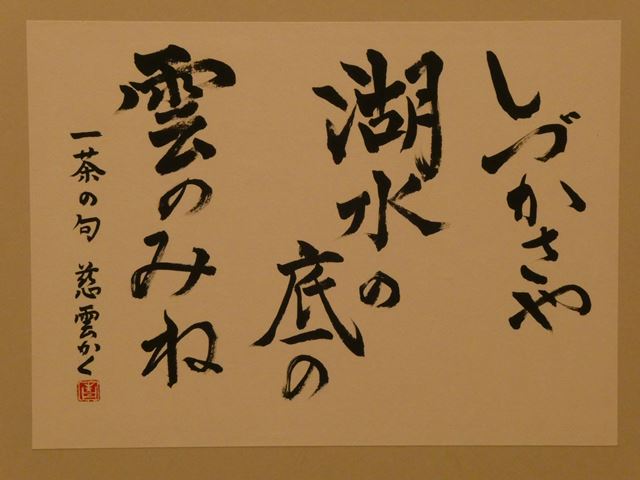 しづかさや
湖水の
底の
雲のみね
一茶の句 慈雲かく